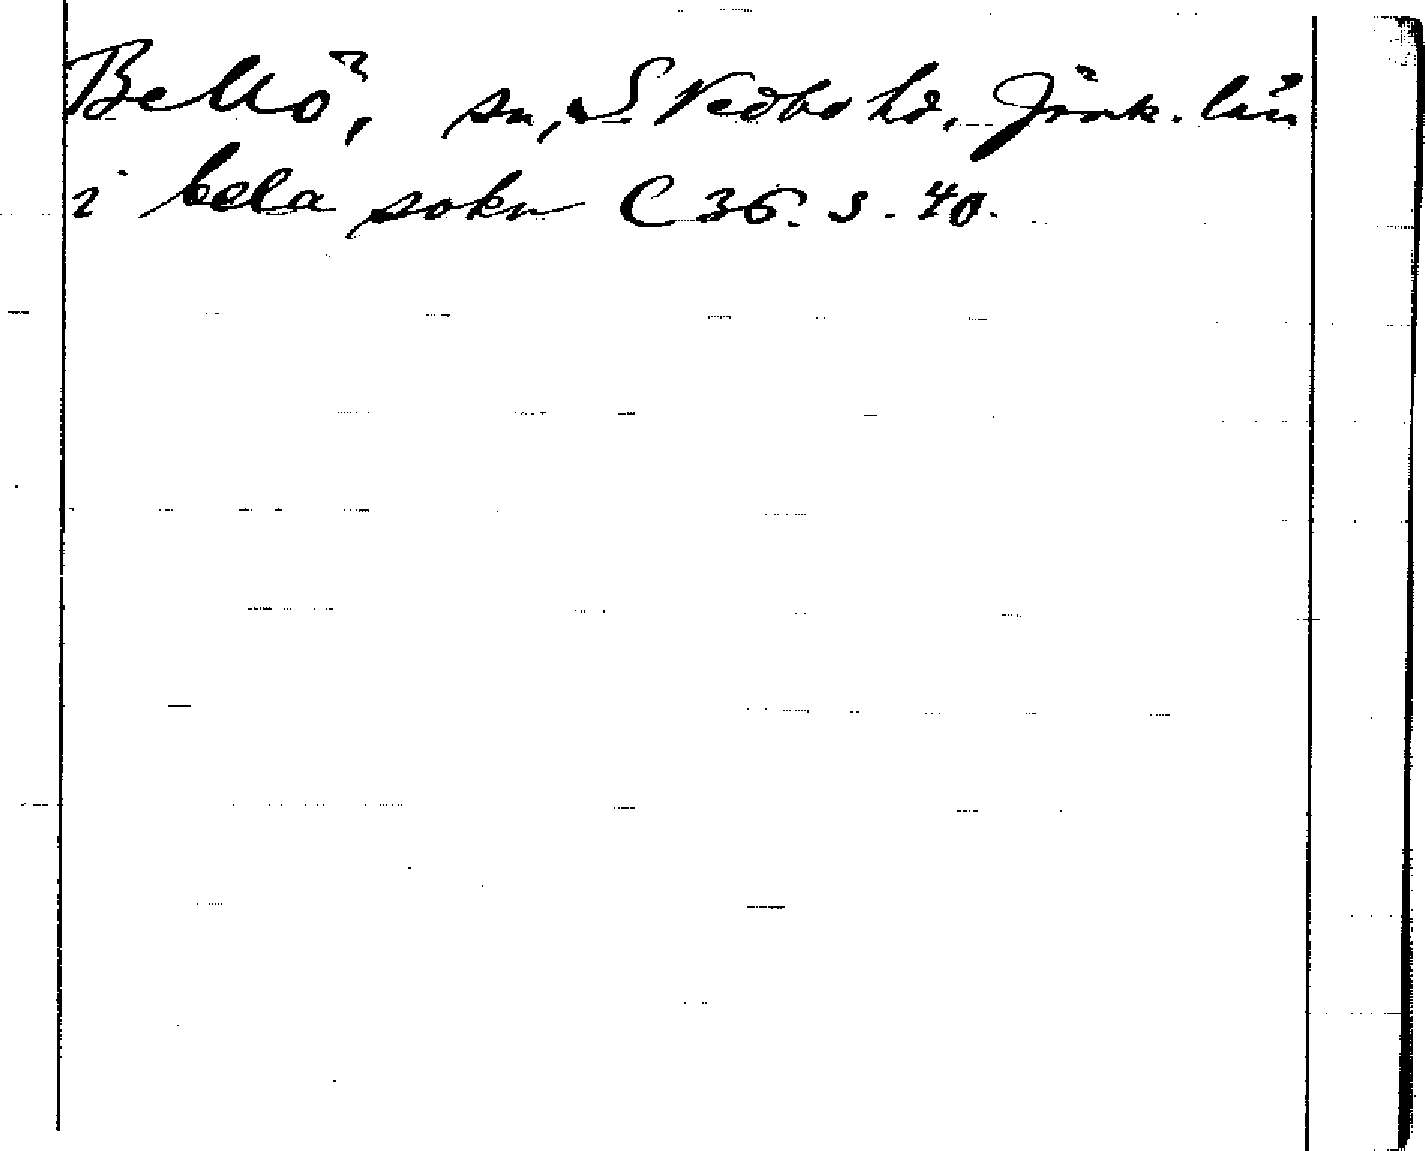 Bellö, sn, S Vedbo hd. Jönk. län
i bela sokn C 36. s. 40.